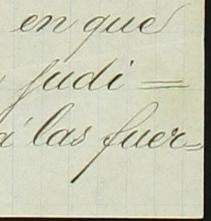 en que
judi=
á las fuer-